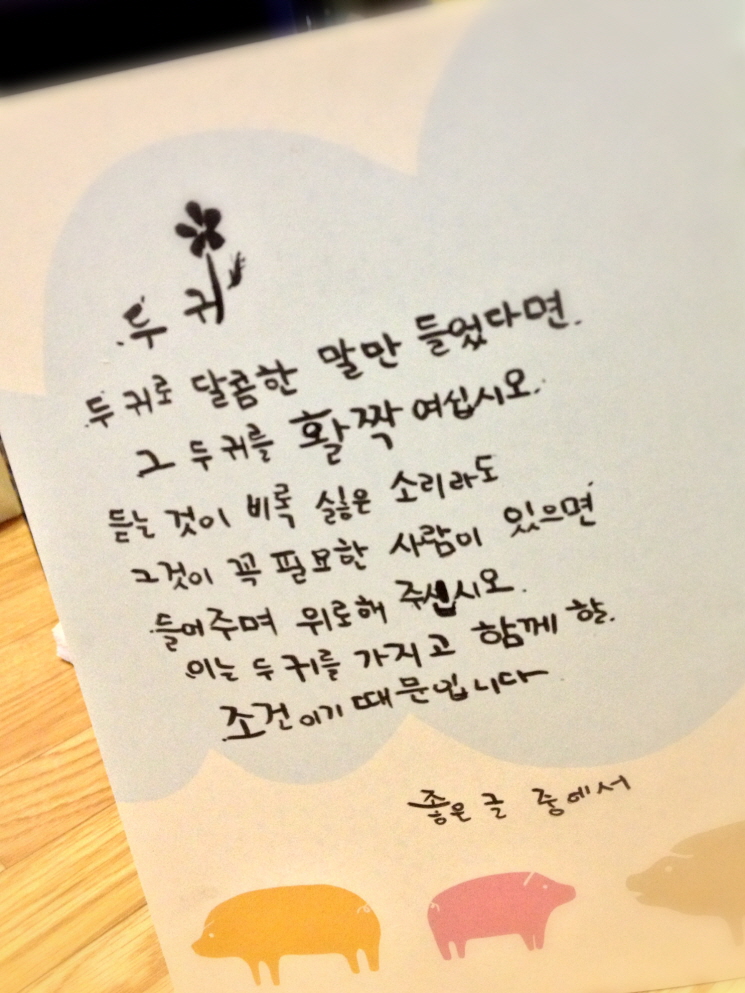 두 귀
두 귀로 달콤한 말만 들었다면.
그 두 귀를 활짝 여십시오.
듣는 것이 비록 싫은 소리라도
그것이 꼭 필요한 사람이 있으면
들어주며 위로해 주십시오.
이는 두 귀를 가지고 함께 할.
조건이기 때문입니다
좋은 글 중에서